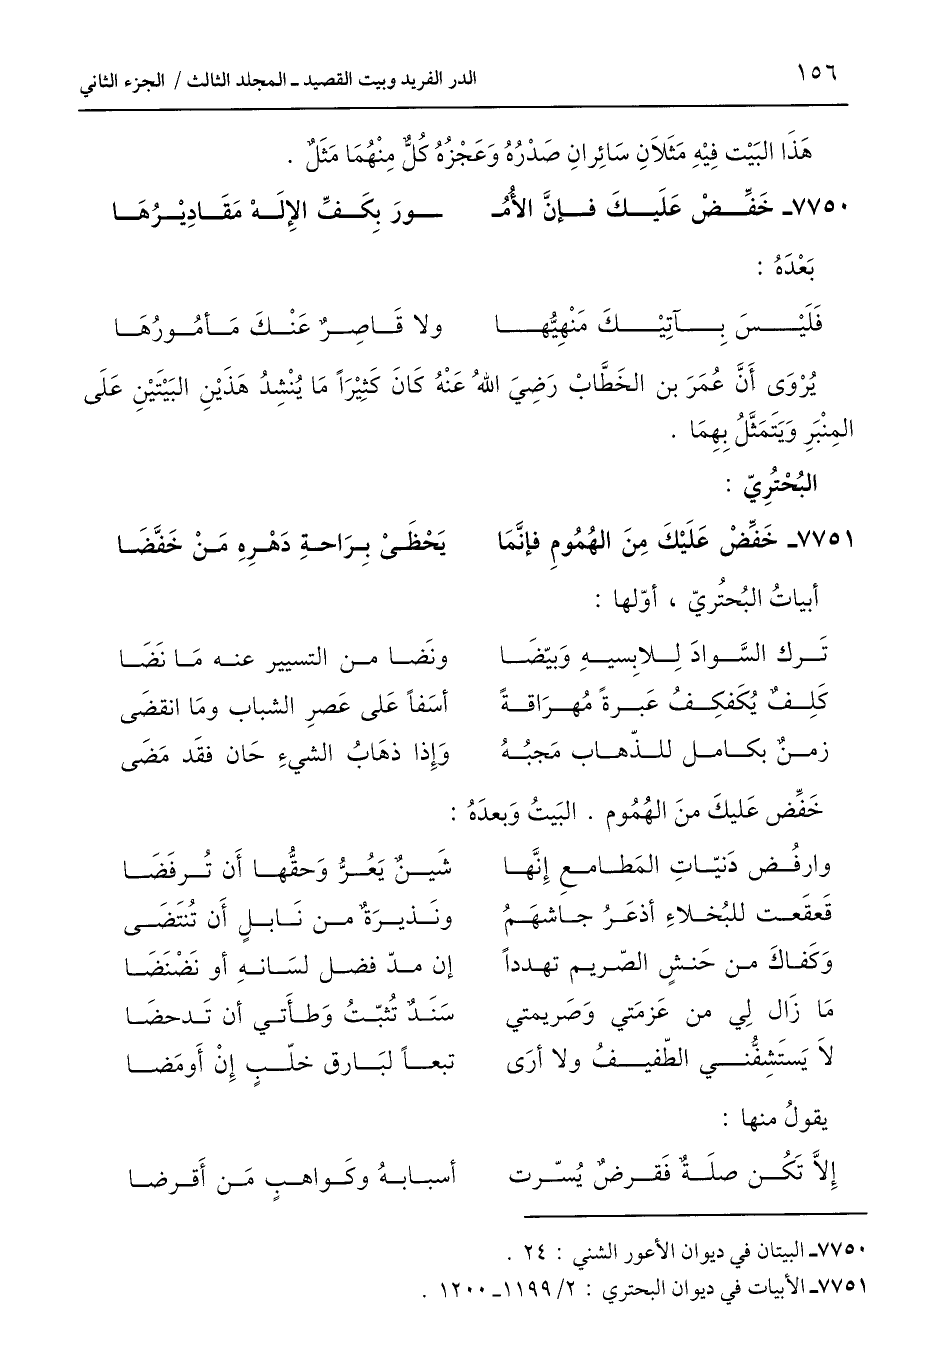 ١٥٦ الدر الفريد وبيت القصيد ـ المجلد الثالث / الجزء الثاني
هَذَا البَيْت فِيْهِ مَثَلاَنِ سَائِرانِ صَدْرُهُ وَعَجْزُهُ كُلٌّ مِنْهُمَا مَثَلٌ .
٧٧٥٠ـ خَفِّضْ عَلَيكَ فإنَّ الأُمُـ ـورَ بِكَفِّ الإلَهْ مَقَادِيْرُهَا
بَعْدَهُ :
فَلَيْسَ بآتِيْكَ مَنْهِيُّهَا ولا قَاصِرٌ عَنْكَ مَأمُورُهَا
يُرْوَى أَنَّ عُمَرَ بن الخَطَّابْ رَضِيَ اللهُ عَنْهُ كَانَ كَثِيْرَاً مَا يُنْشِدُ هَذَيْنِ البَيْتَيْنِ عَلَى
المِنْبَرِ وَيَتَمَثَّلُ بِهِمَا .
البُحْتُرِيّ :
٧٧٥١ـ خَفِّضْ عَلَيْكَ مِنَ الهُمُومِ فإنَّمَا يَحْظَىْ بِرَاحةِ دَهْرِهِ مَنْ خَفَّضَا
أبياتُ البُحتُريّ ، أوّلها :
تَرك السَّوادَ لِلابسيهِ وَبيّضَا ونَضا من التسيير عنه مَا نَضَا
كَلِفٌ يُكَفكِفُ عَبرةً مُهراقةً أسَفاً عَلى عَصرِ الشباب ومَا انقضَى
زمنٌ بكامل للذّهاب مَجيُهُ وَإذا ذهَابُ الشيءِ حَان فقَد مَضَى
خَفِّض عَليكَ منَ الهُمُوم . البَيتُ وَبعدَهُ :
وارفُض دَنيّاتِ المَطامعِ إنَّها شَينٌ يَعُرُّ وَحقُّها أَن تُرفَضَا
قعقعت للبُخلاءِ أذعَرُ جاشهُمُ ونَذيرَةٌ من نَابلٍ أن تُنتَضَى
وَكَفاكَ من حَنشِ الصّريم تهدداً إن مدّ فضل لسَانه أو نَضْنَضَا
مَا زَال لِي من عَزمَتي وَصَريمتي سَنَدٌ تُثبّتُ وَطأَتي أن تَدحضَا
لاَ يَستشفُّني الطّفيفُ ولا أرَى تبعاً لبَارق خلّبٍ إنْ أومَضا
يقولُ منها :
إلاَّ تَكُن صلَةٌ فَقرضٌ يُسّرت أسبابهُ وكَواهبٍ مَن أَقرضا
٧٧٥٠ـ البيتان في ديوان الأعور الشني : ٢٤ .
٧٧٥١ـ الأبيات في ديوان البحتري : ٢/ ١١٩٩ـ ١٢٠٠ .